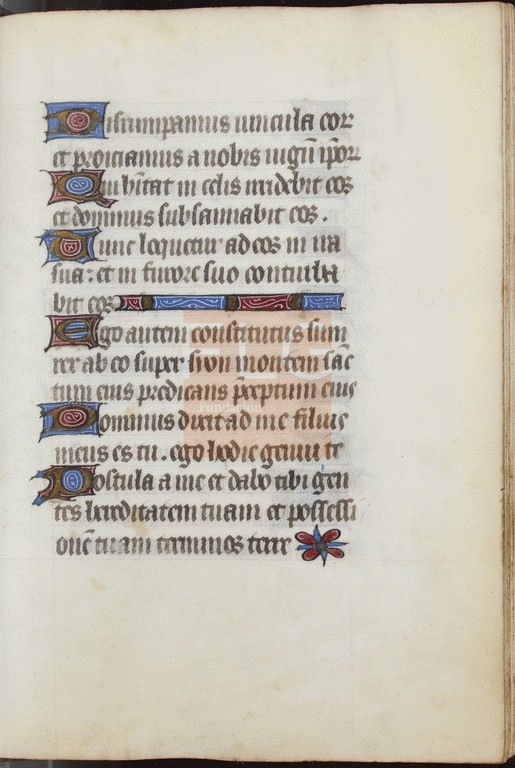 Disrumpamus uincula eor
et proiciamus a nobis iugū ipor
Qui hītat in celis irridebit eos
et dominus subsannabit eos.
Tunc loquetur ad eos in ira
sua: et in furore suo conturba
bit eos
Ego autem constitutus sum
rex ab eo super sion montem sāc
tum eius predicans p̄ceptum eius
Dominus dixit ad me filius
meus es tu. ego hodie genui te
Postula a me et dabo tibi gen
tes hereditatem tuam et possessi
onē tuam terminos terre
FLG
Fundación